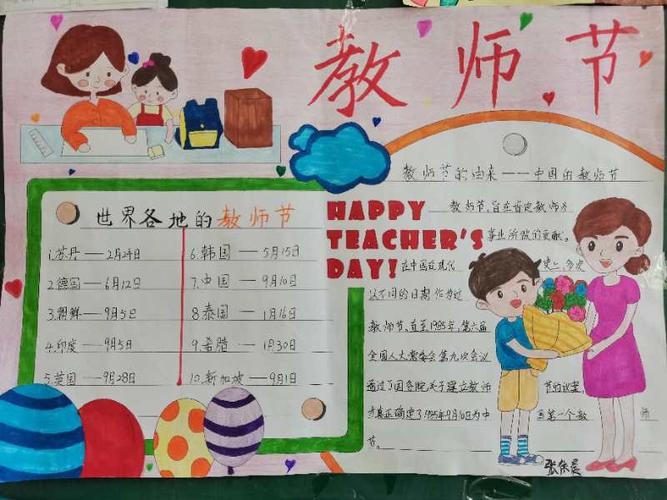 教师节
世界各地的教师节
1.苏丹——2月24日
2.德国——6月12日
3.朝鲜——9月5日
4.印度——9月5日
5.英国——9月28日
6.韩国——5月15日
7.中国——9月10日
8泰国——1月16日
9.希腊——1月30日
10.新加坡——9月1日
HAPPY
TEACHER'S
DAY!
教师节的由来——中国的教师节
教师节,旨在肯定教师为
事业所做的贡献。
在中国近现代
史上,多次
以不同的日期作为过
教师节,直至1985年,第六届
全国人大常委会第九次会议
通过了国务院关于建立教师
节的议案,
才真正确定了1985年9月10日为中
国第一个教
节。